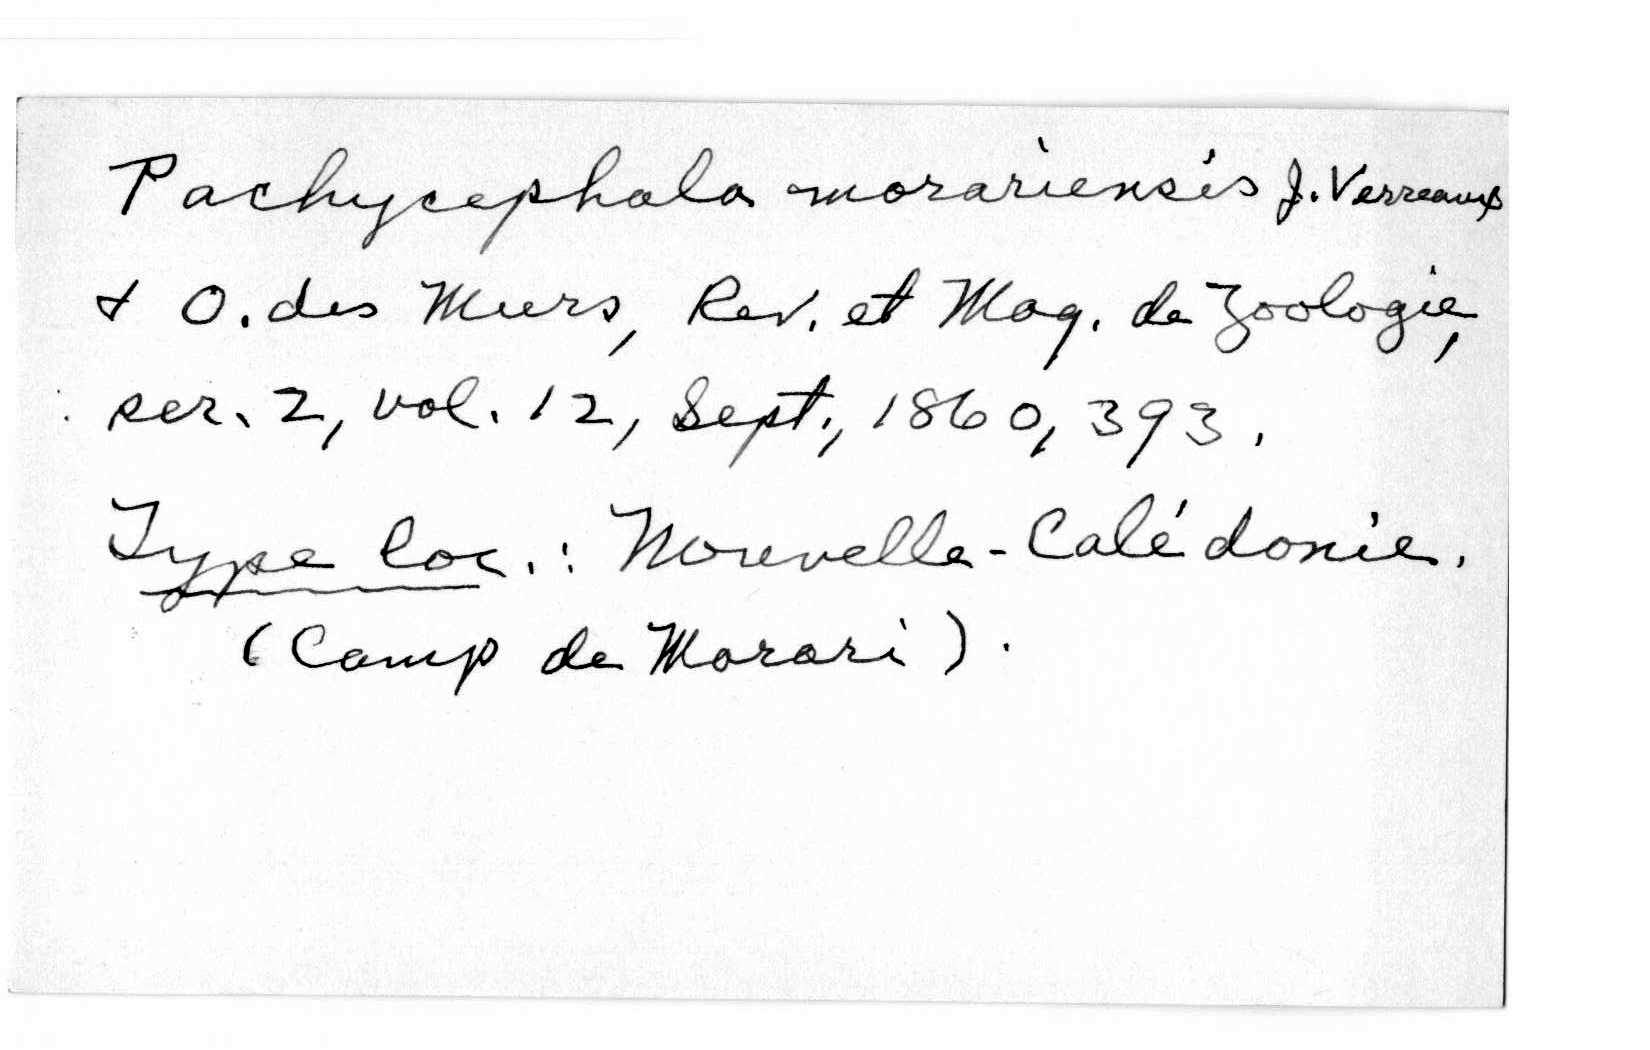 Pachycephala morariensis J. Verreaux
& O. des Murs, Rev. et Mag. de Zoologie,
ser. 2, vol. 12, Sept., 1860, 393.
Type loc.: Nouvelle-Calédonie.
(Camp de Morari).